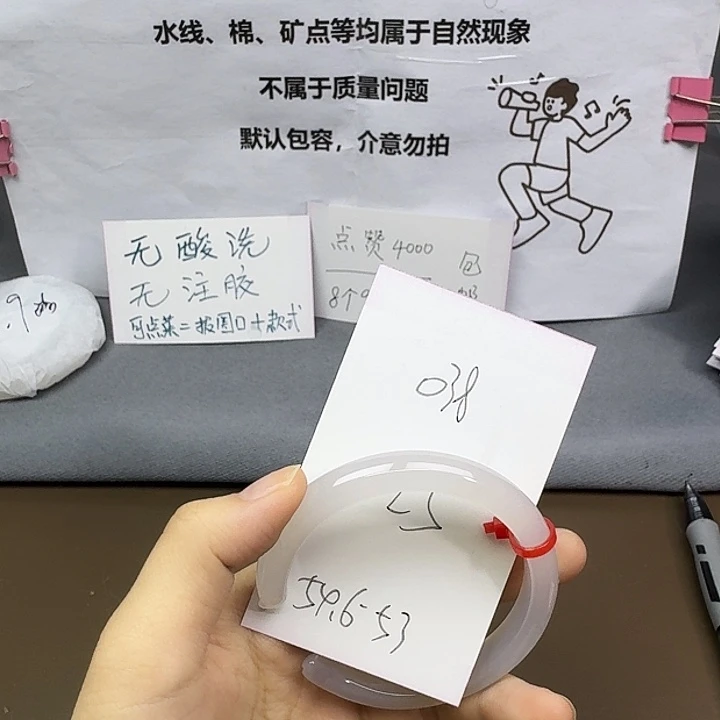 水线、棉、矿点等均属于自然现象
不属于质量问题
默认包容，介意勿拍
无酸洗
无注胶
可点菜=报圈口+款式
点赞4000
8个9
包
.9
038
54.6-53